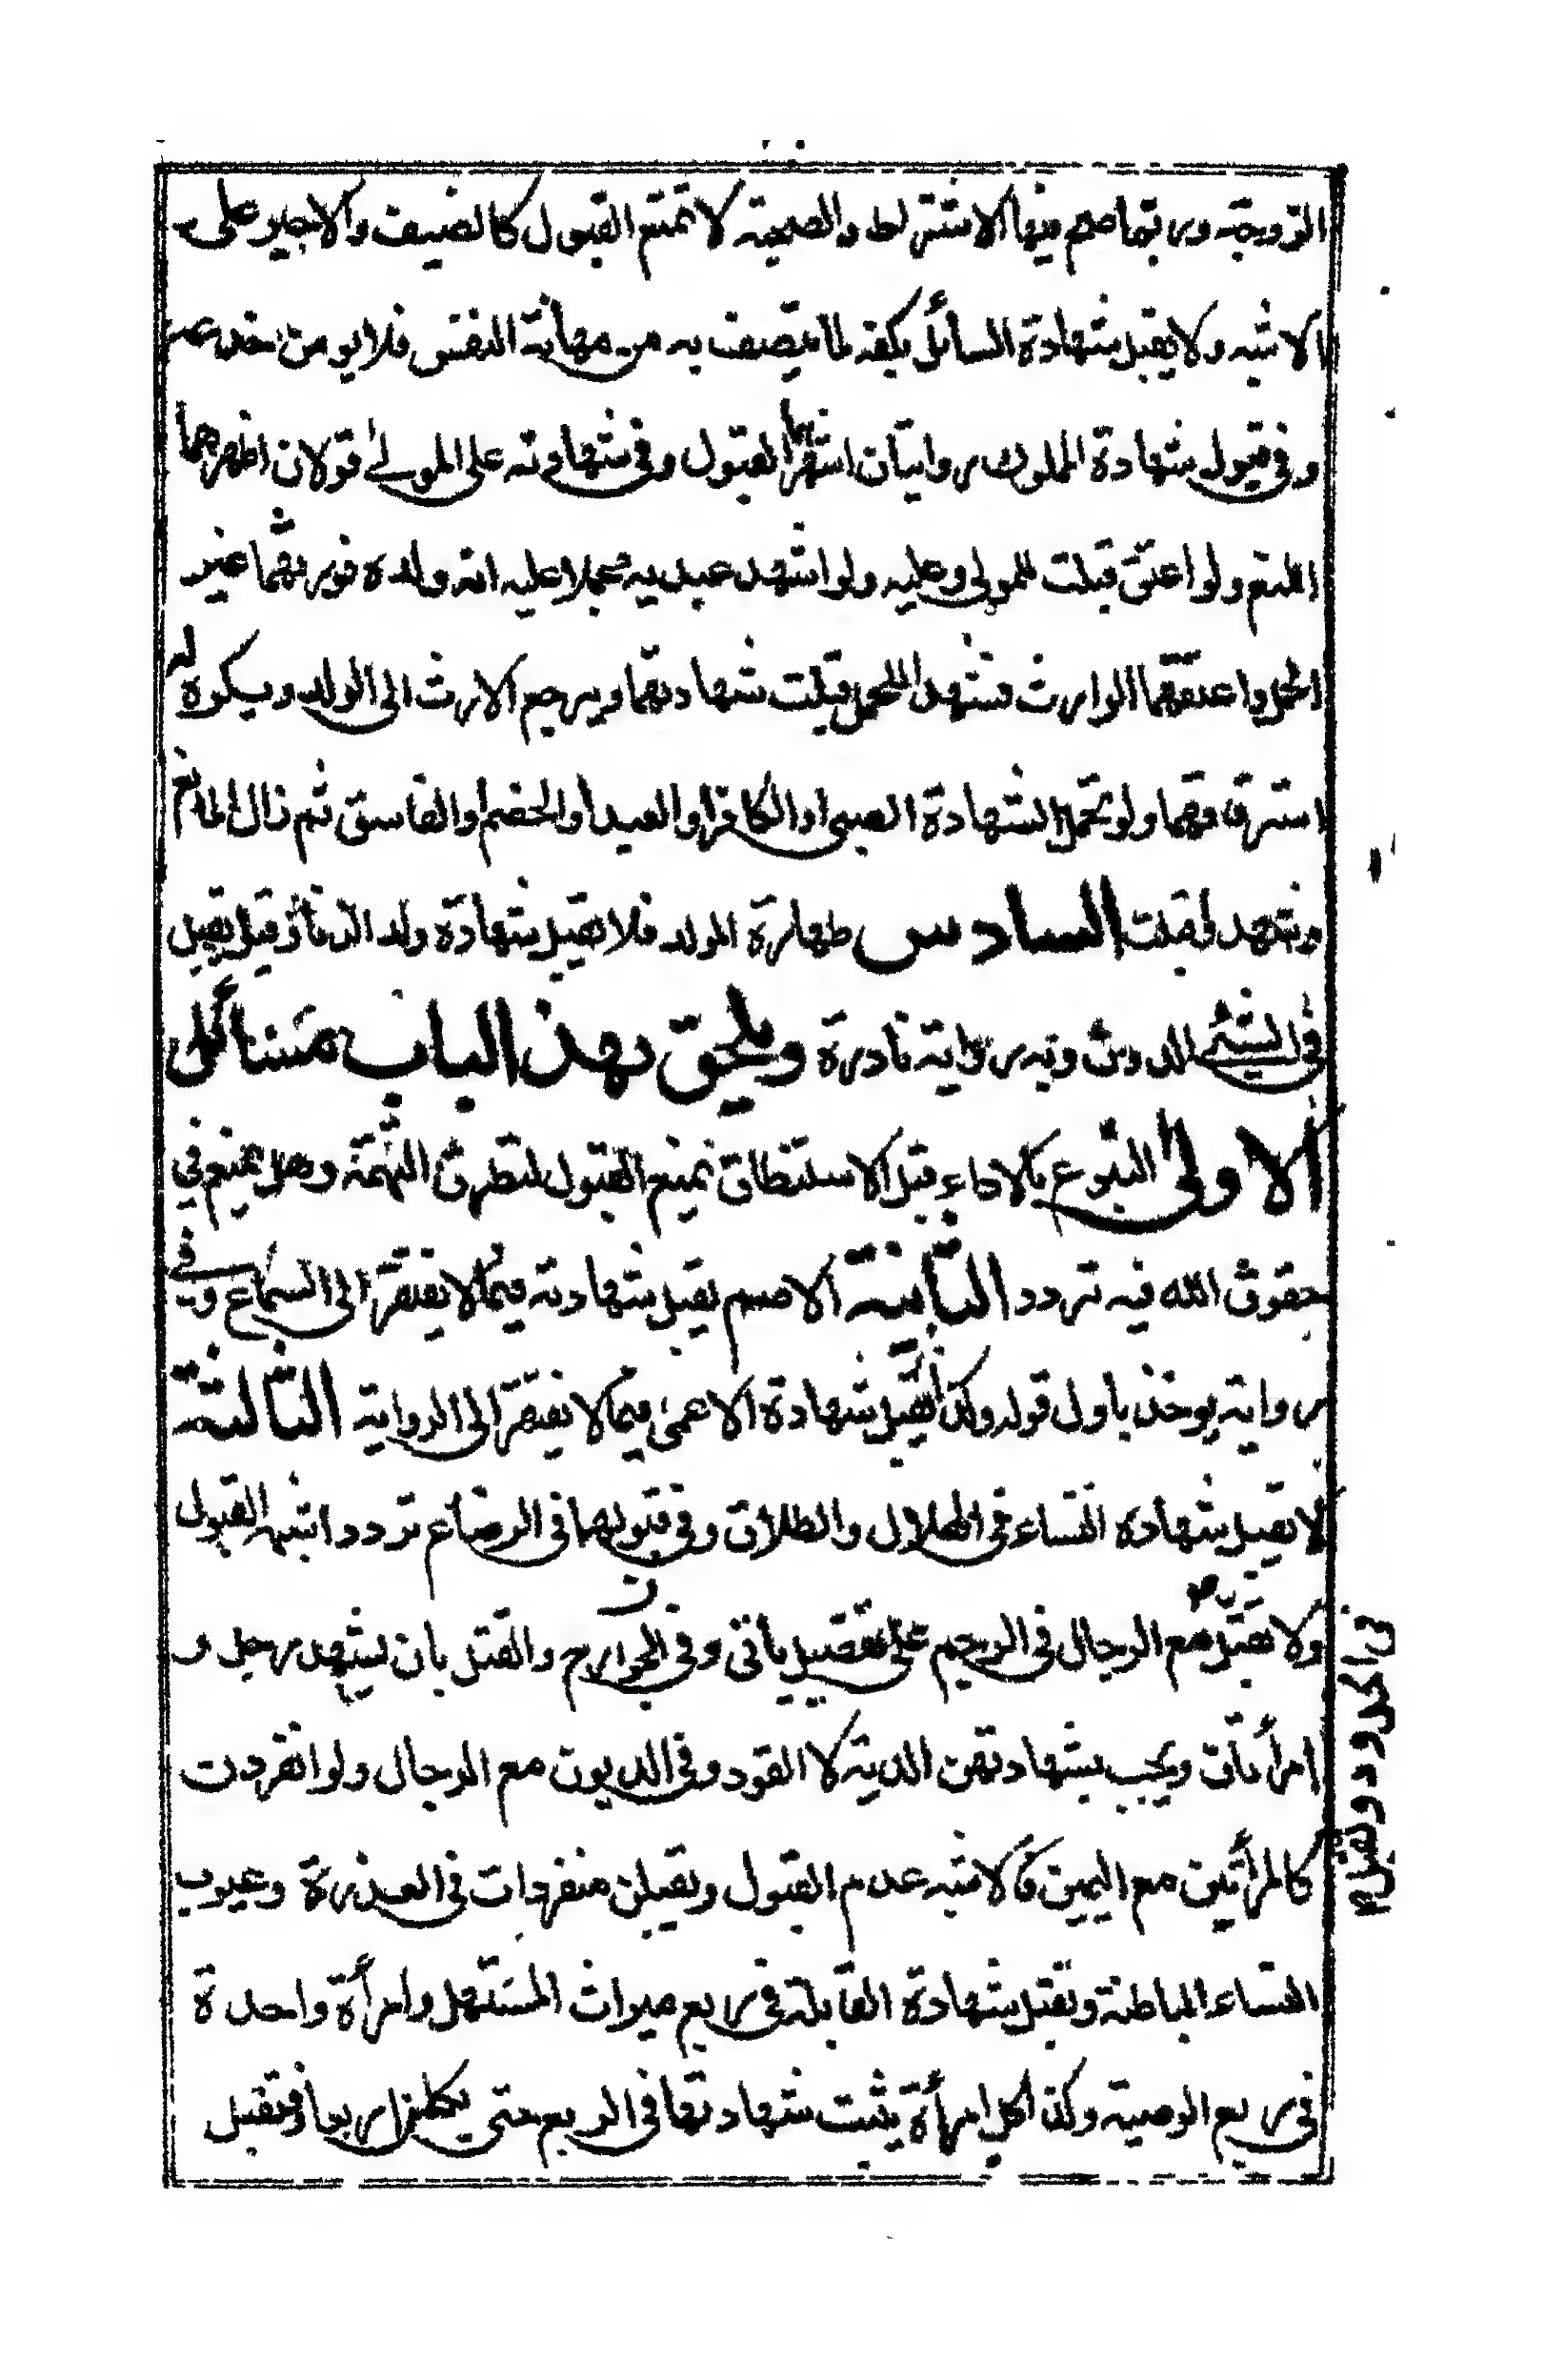 الزوجة وربما صح فيها الاشتراط والصحبة لا تمنع القبول كالضيف والاجير على
الاشبه ولا يقبل شهادة السائل بكفه لما يتصف به من مهانة النفس فلا يومن خدعه
وفى قبول شهادة المملوك روايتان اشهرهما القبول وفى شهادته على المولى قولان اظهرهما
المنع ولو اعتق قبلت للمولى وعليه ولو اشهد عبديه بحملا عليه انه ولده فورثهما غير
الحمل واعتقهما الوارث فشهدا للحمل قبلت شهادتهما ويرجع الارث الى الولد ويكره له
استرقاقهما ولو تحمل الشهادة الصبى او الكافر او العبد او الخصم او الفاسق ثم زال المانع
وشهد قبلت السادس طهارة المولد فلا تقبل شهادة ولد الزنا وقيل تقبل
فى الشئ الدون وبه رواية نادرة ويلحق بهذا الباب مسائل
الاولى التبرع بالاداء قبل الاستنطاق يمنع القبول لتطرق التهمة وهل يمنع فى
حقوق الله فيه تردد الثانية الاصم تقبل شهادته فيما لا يفتقر الى السماع وفى
رواية يوخذ باول قوله وكذا تقبل شهادة الاعمى فيما لا يفتقر الى الرواية الثالثة
لا تقبل شهادة النساء فى الهلال والطلاق وفى قبولها فى الرضاع تردد اشبهه القبول
ولا تقبل مع الرجال فى الرجم على تفصيل ياتى وفى الجوارح والقتل بان يشهد رجل و
امرأتان ويجب بشهادتهن الدية لا القود وفى الديون مع الرجال ولو انفردت
كالمرأتين مع اليمين فالاشبه عدم القبول وتقبلن منفردات فى العذرة وعيوب
النساء الباطنة وتقبل شهادة القابلة فى ربع ميراث المستهل وامرأة واحدة
فى ربع الوصية وكذا كل امرأة يثبت شهادتها فى الربع حتى يكملن اربعا فتقبل